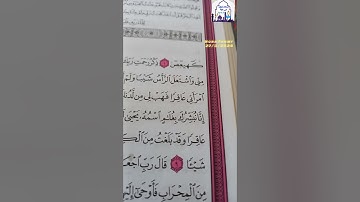 كٓهيعٓصٓ ۝١ ذِكْرُ رَحْمَتِ رَبِّكَ
مِنِّي وَاشْتَعَلَ الرَّأْسُ شَيْبًا وَلَمْ
امْرَأَتِي عَاقِرًا فَهَبْ لِي مِن لَّدُنكَ
إِنَّا نُبَشِّرُكَ بِغُلَٰمٍ اسْمُهُ يَحْيَىٰ
عَاقِرًا وَقَدْ بَلَغْتُ مِنَ الْكِ
شَيْئًا ۝٩ قَالَ رَبِّ اجْعَل
مِنَ الْمِحْرَابِ فَأَوْحَىٰ إِلَيْهِ